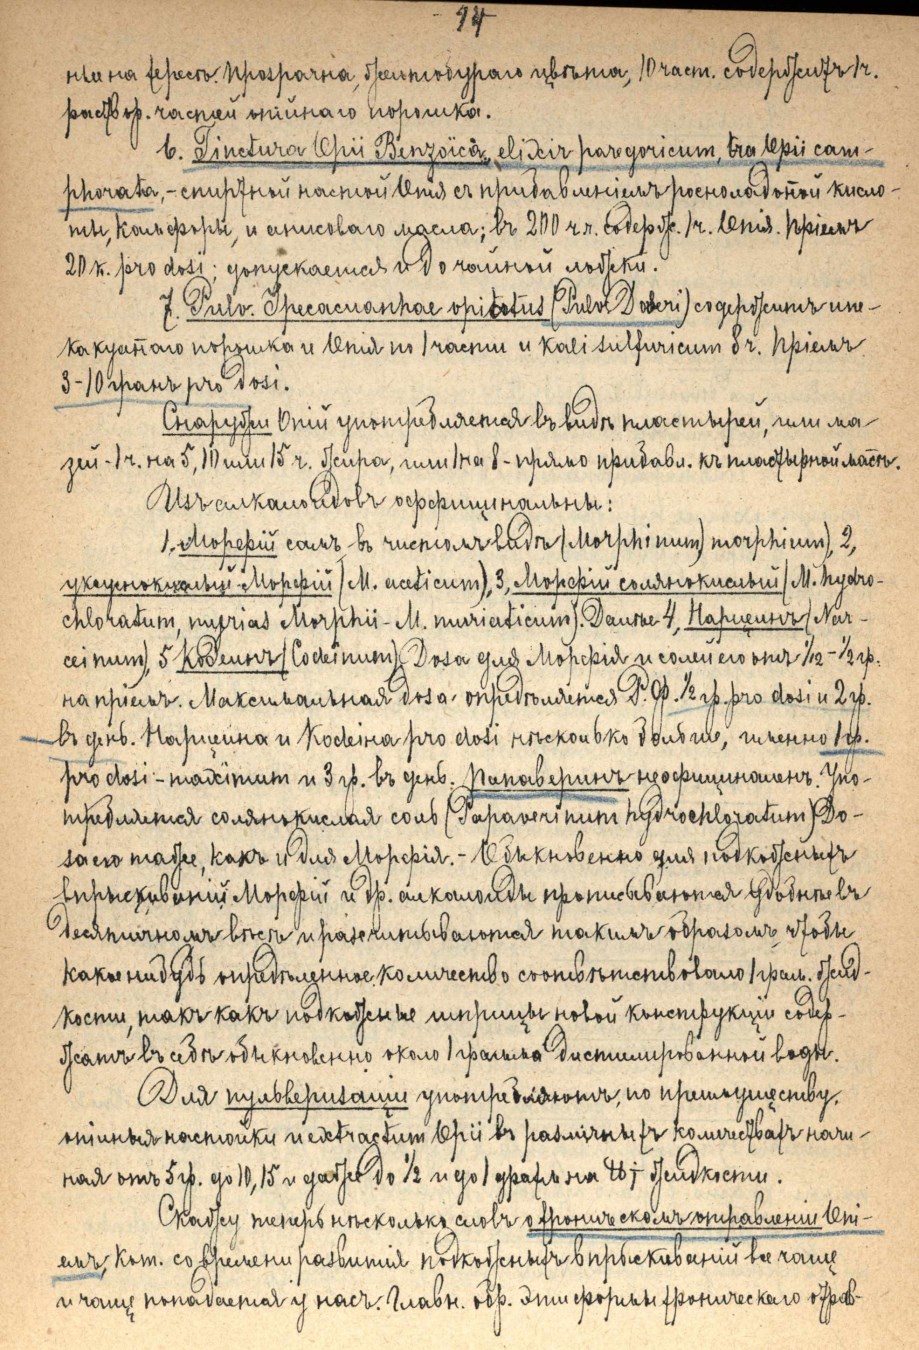 94
ны на хересѣ. Прозрачна, желтобураго цвѣта, 10 част. содержитъ 1 ч.
раствор. частей опійнаго порошка.
6. Tinctura Opii Benzoica, elixir paregoricum, tra Opii cam-
phorata, - спиртной настой Опія съ прибавленіемъ росноладонной кисло-
ты, камфоры, и анисоваго масла; въ 200 ч. содерж. 1 ч. Опія. Пріемъ
20 к. pro dosi; допускается и до чайной ложки.
7. Pulv. Ipecacuanhae opiatus (Pulv. Doveri) содержитъ ипе-
какуаннаго порошка и Опія по 1 части и Kali sulfuricum 8 ч. Пріемъ
3-10 гранъ pro dosi.
Снаружи Опій употребляется въ видѣ пластырей, или ма-
зей - 1 ч. на 5, 10 или 15 ч. жира, или 1 на 8 - прямо прибавл. къ пластырной массѣ.
Изъ алкалоидовъ оффицинальны:
1. Морфій самъ въ чистомъ видѣ (Morphinum) morphium), 2,
уксуснокислый Морфій (M. aceticum), 3, Морфій солянокислый (M. hydro-
chloratum, murias Morphii - M. muriaticum). Далѣе 4, Нарцеинъ (Nar-
ceinum), 5 Кодеинъ (Codeinum). Dosa для Морфія и солей его отъ 1/12 - 1/2 гр.
на пріемъ. Максимальная dosa опредѣляется 1/2 гр. pro dosi и 2 гр.
въ день. Нарцеина и Кодеіна pro dosi нѣсколько больше, именно 1 гр.
pro dosi - maximum и 3 гр. въ день. Папаверинъ неофициналенъ. Упо-
требляется солянокислая соль (Papaverinum hydrochloratum) Do-
sa его также, какъ и для Морфія. - Обыкновенно для подкожныхъ
впрыскиваній Морфій и др. алкалоиды прописываются удобнѣе въ
десятичномъ вѣсѣ и разсчитываются такимъ образомъ, чтобы
какое нибудь опредѣленное количество соотвѣтствовало 1 грам. жид-
кости, такъ какъ подкожные шприцы новой конструкціи содер-
жатъ въ себѣ обыкновенно около 1 грамма дистилированной воды.
Для пульверизаціи употребляютъ, по преимуществу,
опійныя настойки и extractum Opii въ различныхъ количествахъ начи-
ная отъ 5 гр. до 10, 15 и даже до 1/2 и до 1 драхъ на жидкости.
Скажу теперь нѣсколько словъ о хроническомъ отравленіи Опі-
емъ, кот. со времени развитія подкожныхъ впрыскиваній все чаще
и чаще попадается у насъ. Главн. обр. эти формы хроническаго отрав-